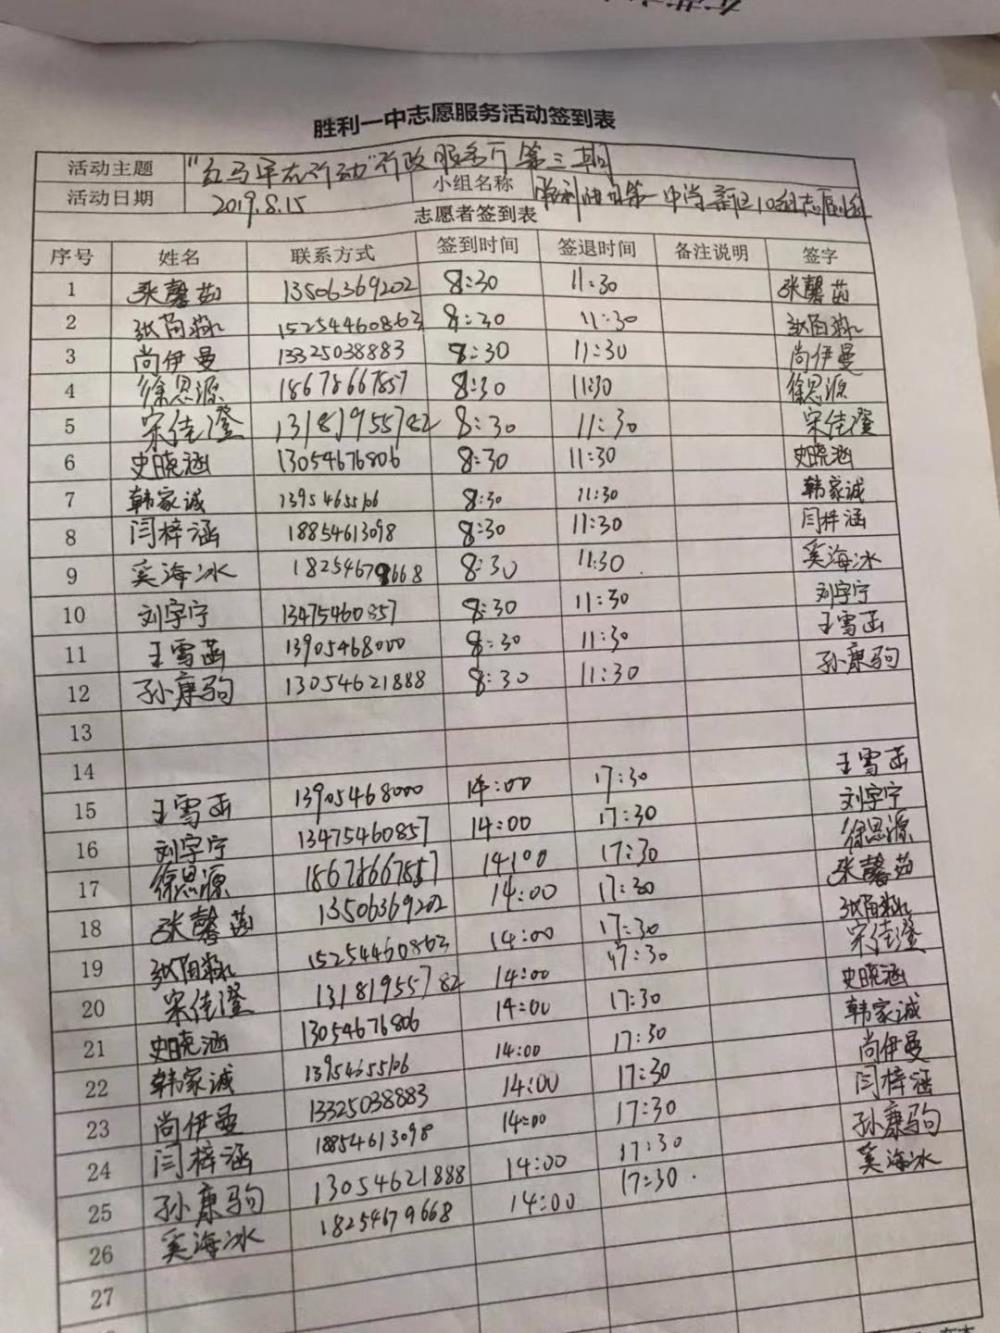 胜利一中志愿服务活动签到表
活动主题 "红马甲在行动"行政服务厅第三期
活动日期 2019.8.15 小组名称 胜利油田第一中学新区10组志愿组
志愿者签到表
序号 姓名 联系方式 签到时间 签退时间 备注说明 签字
1 张馨茹 13506369202 8:30 11:30 张馨茹
2 15254460863 8:30 11:30
3 尚伊曼 13325038883 8:30 11:30 尚伊曼
4 徐思源 18678667857 8:30 11:30 徐思源
5 宋佳澄 13181955782 8:30 11:30 宋佳澄
6 史晓涵 13054676806 8:30 11:30 史晓涵
7 韩家诚 8:30 11:30 韩家诚
8 闫梓涵 18854613098 8:30 11:30 闫梓涵
9 奚海冰 18254679668 8:30 11:30 奚海冰
10 刘宇宁 13475460857 8:30 11:30 刘宇宁
11 王雪菡 13905468000 8:30 11:30 王雪菡
12 孙康驹 13054621888 8:30 11:30 孙康驹
13
14
15 王雪菡 13905468000 14:00 17:30 王雪菡
16 刘宇宁 13475460857 14:00 17:30 刘宇宁
17 徐思源 18678667857 14:00 17:30 徐思源
18 张馨茹 13506369202 14:00 17:30 张馨茹
19 15254460863 14:00 17:30
20 宋佳澄 13181955782 14:00 17:30 宋佳澄
21 史晓涵 13054676806 14:00 17:30 史晓涵
22 韩家诚 14:00 17:30 韩家诚
23 尚伊曼 13325038883 14:00 17:30 尚伊曼
24 闫梓涵 18854613098 14:00 17:30 闫梓涵
25 孙康驹 13054621888 14:00 17:30 孙康驹
26 奚海冰 18254679668 14:00 17:30 奚海冰
27